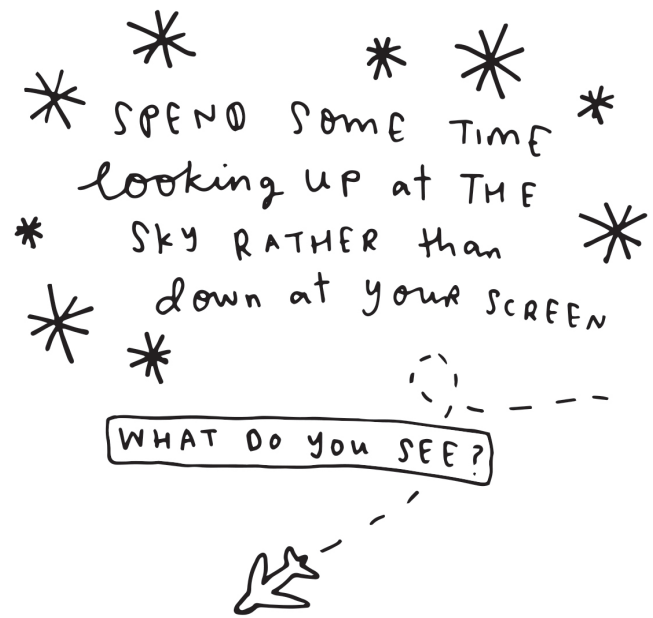 SPEND SOME TIME
looking up at THE
SKY RATHER than
down at your SCREEN
WHAT DO YOU SEE?